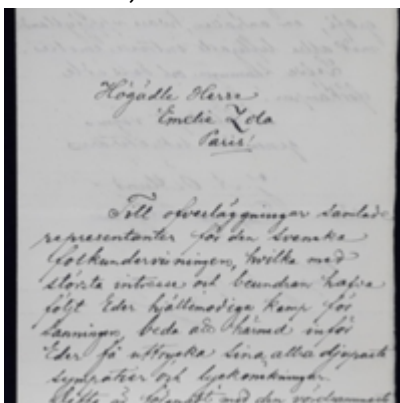 Högädle Herre
Emelie Zola
Paris!
Till öfverläggningar samlade
representanter för den svenska
folkundervisningen, hvilka med
största intresse och beundran hafva
följt Eder hjältemodiga kamp för
sanningen, beda att härmed inför
Eder få uttrycka sina allra djupaste
sympatier och lyckönskningar.
med den